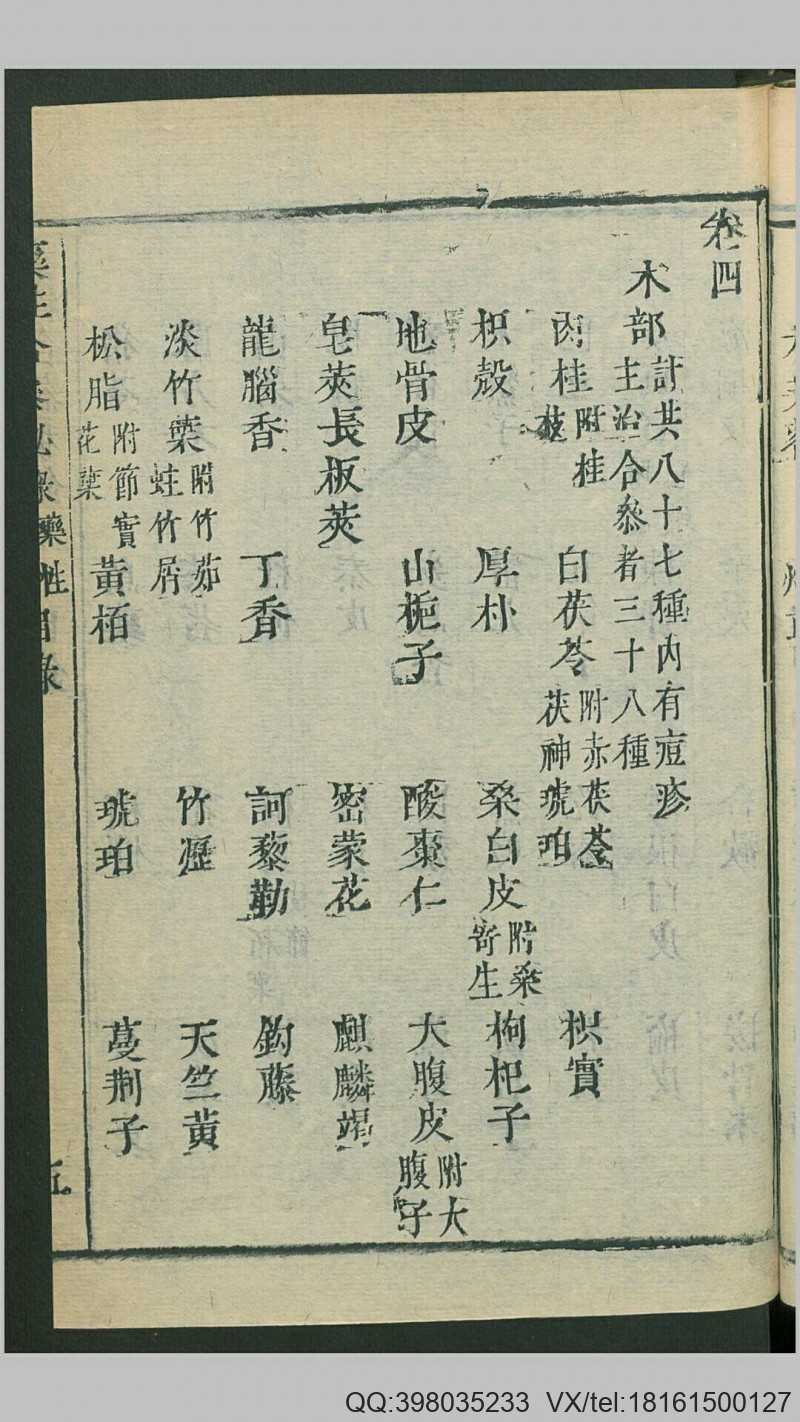 卷四
木部計共八十七種內有痘疹
主治合叅者三十八種
肉桂附桂枝 白茯苓附赤茯苓茯神琥珀 枳實
枳殼 厚朴 桑白皮附桑寄生 枸杞子
地骨皮 山梔子 酸棗仁 大腹皮附大腹子
皂莢長板莢 密蒙花 麒麟竭
龍腦香 丁香 訶藜勒 鈎藤
淡竹葉附竹茹蛀竹屑 竹瀝 天竺黃
松脂附節實花葉 黃栢 琥珀 蔓荆子
藥性目錄
五
QQ:398035233 VX/tel:18161500127